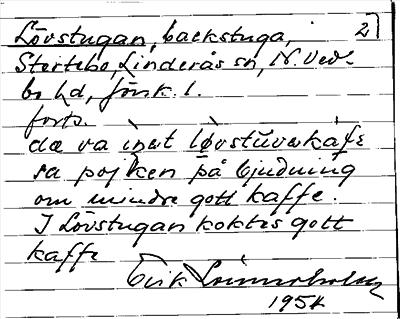 Lövstugan, backstuga, 2]
Stertebo, Linderås sn, N. Ved-
bo hd, försk. 1.
forts.
dæ va inet løvstuvekafe
sa pojken på bjudning
om mindre gott kaffe.
I Lövstugan koktes gott
kaffe
Erik
1954